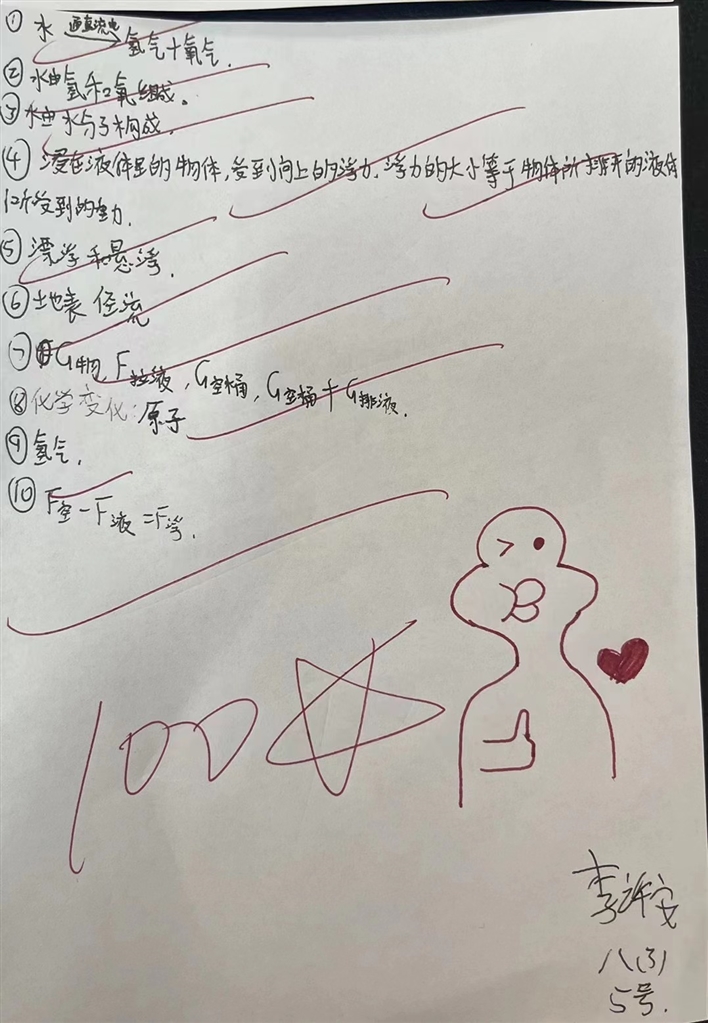 ① 水 通直流电 氢气+氧气.
② 水由氢和氧组成。
③ 水由水分子构成.
④ 浸在液体里的物体,受到向上的浮力.浮力的大小等于物体所排开的液体
所受到的重力.
⑤ 漂浮和悬浮.
⑥ 地表径流
⑦ G物, F拉液, G空桶, G空桶+G排液.
⑧ 化学变化: 原子
⑨ 氢气.
⑩ F空-F液=F浮.
100
李
八(3)
5号.